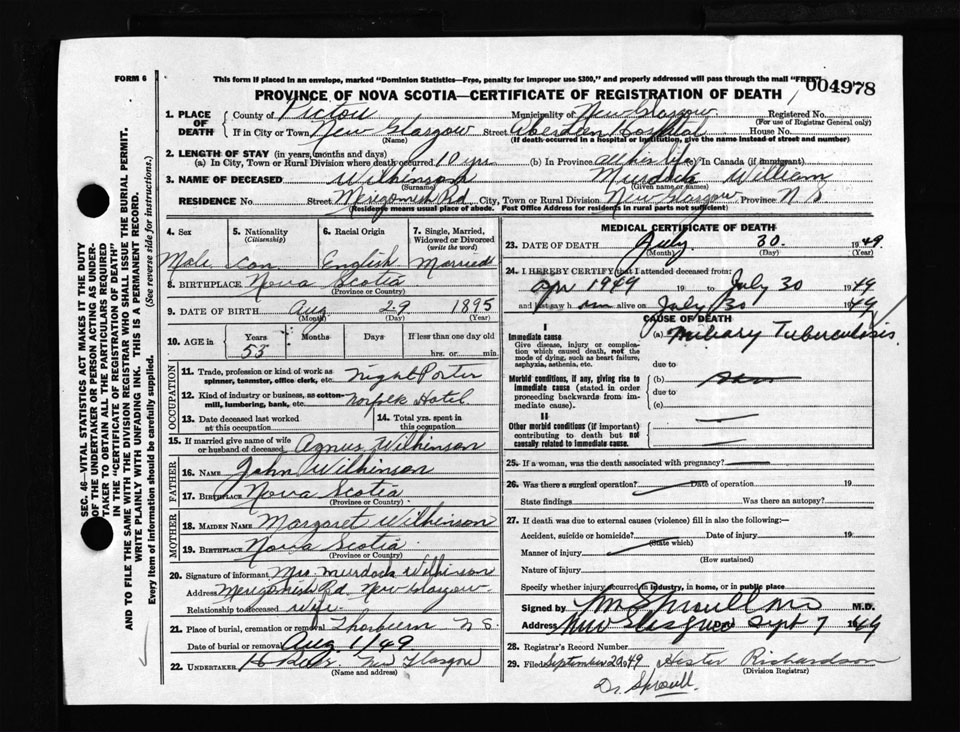 FORM 6
This form if placed in an envelope, marked "Dominion Statistics—Free, penalty for improper use $300," and properly addressed will pass through the mail "FREE"
004978
PROVINCE OF NOVA SCOTIA—CERTIFICATE OF REGISTRATION OF DEATH
SEC. 46—VITAL STATISTICS ACT MAKES IT THE DUTY
OF THE UNDERTAKER OR PERSON ACTING AS UNDER-
TAKER TO OBTAIN ALL THE PARTICULARS REQUIRED
IN THE "CERTIFICATE OF REGISTRATION OF DEATH"
AND TO FILE THE SAME WITH THE DIVISION REGISTRAR WHO SHALL ISSUE THE BURIAL PERMIT.
WRITE PLAINLY WITH UNFADING INK. THIS IS A PERMANENT RECORD.
Every item of information should be carefully supplied. (See reverse side for instructions.)
1. PLACE OF DEATH County of Pictou Municipality of New Glasgow Registered No.
(For use of Registrar General only)
If in City or Town New Glasgow Street Aberdeen Hospital House No.
(Name) (If death occurred in a hospital or institution, give the name instead of street and number)
2. LENGTH OF STAY (in years, months and days)
(a) In City, Town or Rural Division where death occurred 10 yrs (b) In Province all his life (c) In Canada (if immigrant)
3. NAME OF DECEASED Wilkinson Murdock William
(Surname) (Given name or names)
RESIDENCE No. Street Merigomish Rd City, Town or Rural Division New Glasgow Province N S
(Residence means usual place of abode. Post Office Address for residents in rural parts not sufficient)
4. Sex 5. Nationality (Citizenship) 6. Racial Origin 7. Single, Married, Widowed or Divorced (write the word)
Male Can English Married
8. BIRTHPLACE Nova Scotia
(Province or Country)
9. DATE OF BIRTH Aug 29 1895
(Month) (Day) (Year)
10. AGE in Years Months Days If less than one day old
53 hrs. or min.
OCCUPATION
11. Trade, profession or kind of work as spinner, teamster, office clerk, etc. Night Porter
12. Kind of industry or business, as cotton-mill, lumbering, bank, etc. Norfolk Hotel
13. Date deceased last worked at this occupation
14. Total yrs. spent in this occupation
15. If married give name of wife or husband of deceased Agnus Wilkinson
FATHER
16. NAME John Wilkinson
17. BIRTHPLACE Nova Scotia
(Province or Country)
MOTHER
18. MAIDEN NAME Margaret Wilkinson
19. BIRTHPLACE Nova Scotia
(Province or Country)
20. Signature of informant Mrs Murdock Wilkinson
Address Merigomish Rd. New Glasgow
Relationship to deceased Wife
21. Place of burial, cremation or removal Thorburn N S
Date of burial or removal Aug 1/49
22. UNDERTAKER New Glasgow
(Name and address)
MEDICAL CERTIFICATE OF DEATH
23. DATE OF DEATH July 30 1949
(Month) (Day) (Year)
24. I HEREBY CERTIFY that I attended deceased from:
1949 19 to July 30 1949
and last saw him alive on July 30 1949
CAUSE OF DEATH
I
Immediate cause (a) Miliary Tuberculosis
Give disease, injury or complication which caused death, not the mode of dying, such as heart failure, asphyxia, asthenia, etc.
due to
Morbid conditions, if any, giving rise to immediate cause (stated in order proceeding backwards from immediate cause).
(b)
due to
(c)
II
Other morbid conditions (if important) contributing to death but not causally related to immediate cause.
25. If a woman, was the death associated with pregnancy?
26. Was there a surgical operation? Date of operation 19
State findings Was there an autopsy?
27. If death was due to external causes (violence) fill in also the following:—
Accident, suicide or homicide? Date of injury 19
(State which)
Manner of injury
(How sustained)
Nature of injury
Specify whether injury occurred in industry, in home, or in public place
Signed by M Sproull MD M.D.
Address New Glasgow Date Sept 7 1949
28. Registrar's Record Number
29. Filed September 20 1949 Hester Richardson
(Division Registrar)
Dr. Sproull